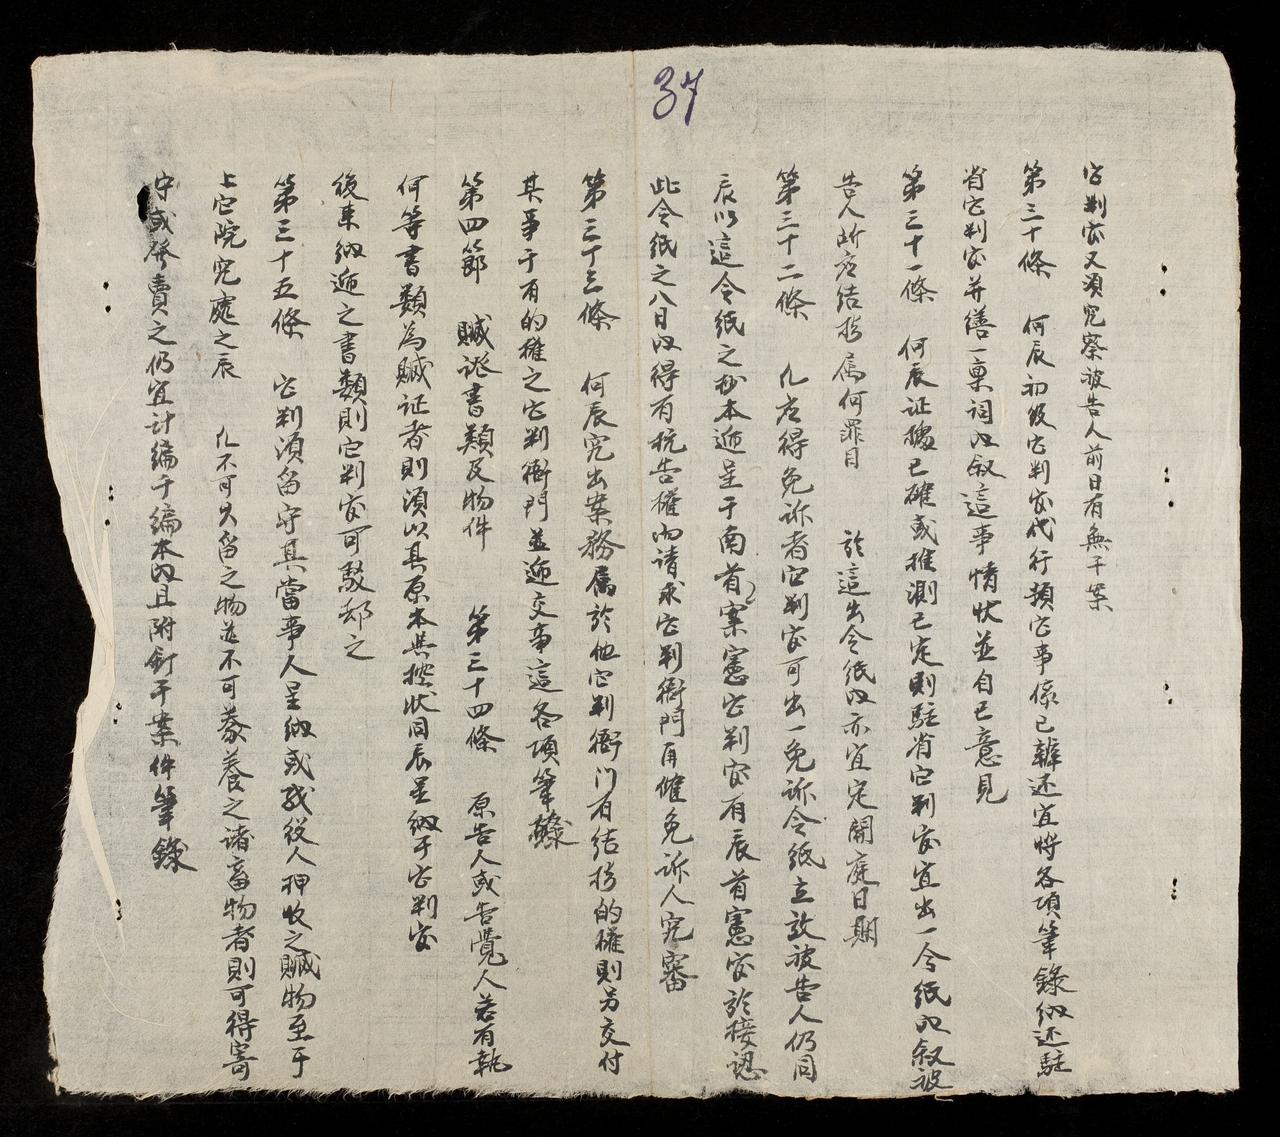 37
官判官又須究察被告人前日有無干案
第三十條　何辰初級官判官代行預官事係已辦还宜將各項筆錄納还駐
省官判官并繕一稟詞內叙這事情狀並自己意見
第三十一條　何辰证據已確或推測已定則駐省官判官宜出一令紙內叙被
告人所应結指属何罪目　於這出令紙內亦宜定開庭日期
第三十二條　凡应得免訴者官判官可出一免訴令紙立放被告人仍同
辰以這令紙之抄本遞呈于南首案憲官判官有辰首憲官於接認
此令紙之八日內得有抗告權而请求官判衙門再催免訴人究審
第三十三條　何辰究出案務属於他官判衙门有結指的權則另交付
其事于有的權之官判衙門並遞交事這各項筆錄
第四節　贓证書類及物件　第三十四條　原告人或告覺人若有執
何等書類為贓证者則須以其原本與控状同辰呈納于官判官
後来納遞之書類則官判官可駁却之
第三十五條　官判須留守其當事人呈納或或役人押收之贓物至于
上官院究處之辰　凡不可久留之物並不可豢養之诸畜物者則可得寄
守或發賣之仍宜计編于編本內且附釘于案件筆錄